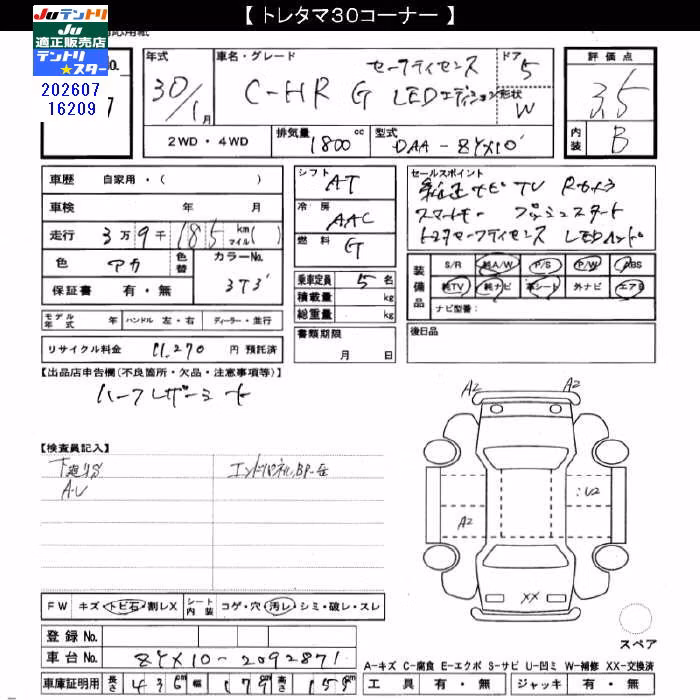 【 トレタマ30コーナー 】
JUテントリ
JU
適正販売店
テントリ
★スター
202607
16209
年式 30/1月
車名・グレード セーフティセンス
C-HR G LEDエディション
ドア 5
形状 W
評価点 3.5
内装 B
2WD ・ 4WD 排気量 1800cc 型式 DAA-ZYX10
車歴 自家用・( )
車検 年 月
走行 3万9千185 km マイル( )
色 アカ 色替 カラーNo. 3T3
保証書 有・無
モデル年式 年 ハンドル 左・右 ディーラー・並行
リサイクル料金 11.270 円 預託済
シフト AT
冷房 AAC
燃料 G
乗車定員 5 名
積載量 kg
総重量 kg
書類期限
月 日
セールスポイント
純正ナビ TV Rカメラ
スマートキー プッシュスタート
トヨタセーフティセンス LEDヘッド
装備品 S/R 純A/W P/S P/W ABS
純TV 純ナビ 革シート 外ナビ エアB
ナビ型番:
後日品
【出品店申告欄(不良箇所・欠品・注意事項等)】
ハーフレザーシート
【検査員記入】
エンドパネル,BP-
A-U
A2 A2
:U2
A2
XX
FW キズ・トビ石・割レX シート内装 コゲ・穴・汚レ・シミ・破レ・スレ
登録 No.
車台 No. ZYX10-2092871
車庫証明用 長さ 436 幅 179 高さ 155
スペア
A-キズ C-腐食 E-エクボ S-サビ U-凹ミ W-補修 XX-交換済
工具 有・無 ジャッキ 有・無